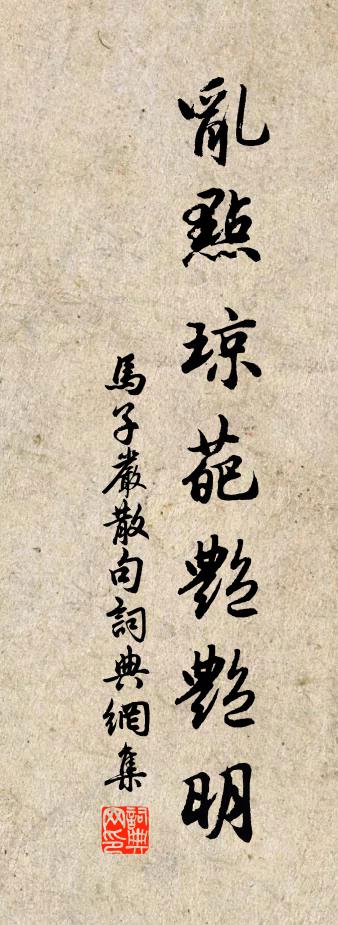 亂點琼葩艷艷明
馬子嚴散句詞典網集
詞典网印